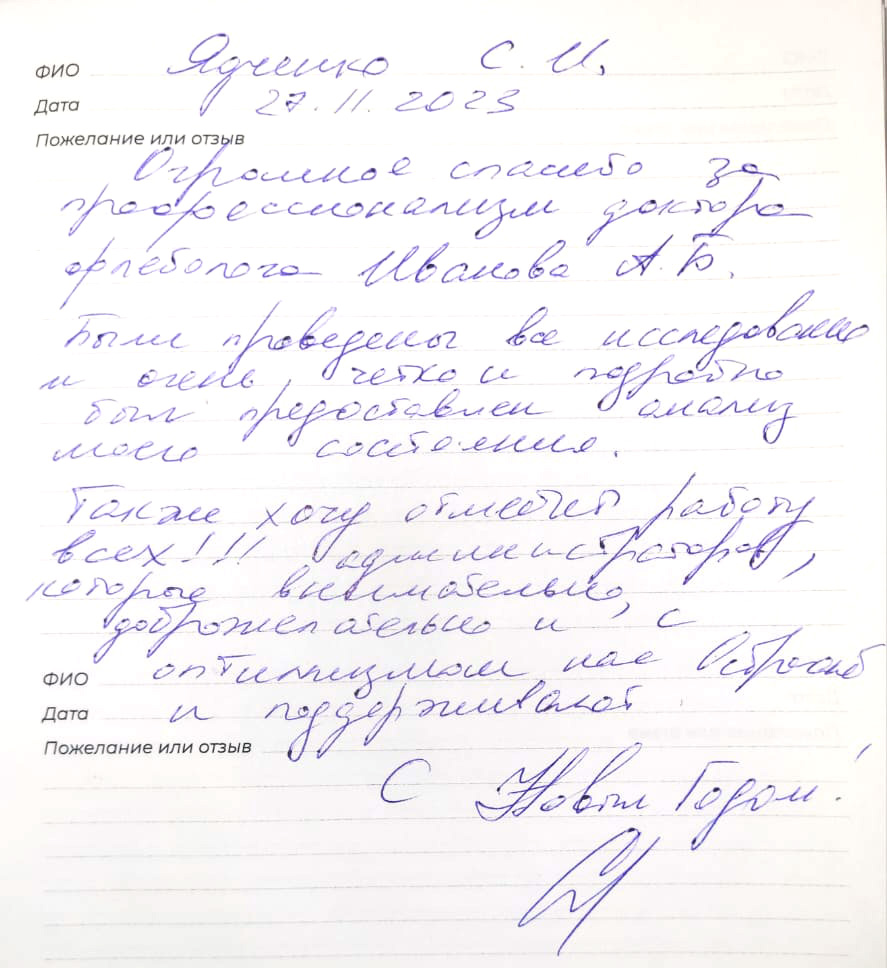 ФИО Ядченко С. И.
Дата 27.11.2023
Пожелание или отзыв
Огромное спасибо за
профессионализм доктора
флеболога Иванова А.Б.
Были проведены все исследования
и очень четко и подробно
был предоставлен анализ
моего состояния.
Также хочу отметить работу
всех!!! администраторов,
которые внимательно,
доброжелательно и с
ФИО оптимизмом нас
Дата и поддерживают
Пожелание или отзыв
С Новым Годом!